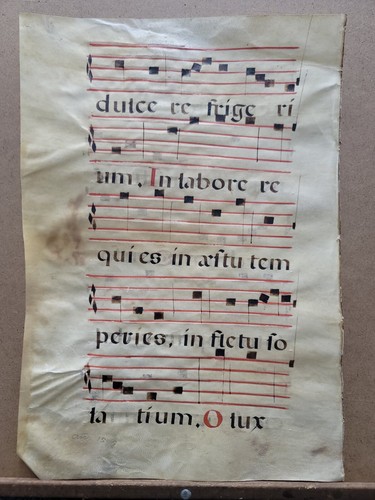 dulce re frige ri
um. In labore re
qui es in æstu tem
peries, in fletu so
la tium. O lux